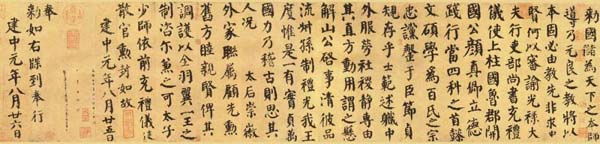 勅國儲為天下之本師
導乃元良之教將以
本固必由教先非求忠
賢何以審諭光祿大
夫行吏部尚書充禮
儀使上柱國魯郡開
國公顏真卿立德
踐行當四科之首懿
文碩學為百氏之宗
忠讜罄于臣節貞
規存乎士範述職中
外服勞社稷靜專由
其直方動用謂之懸
解山公啟事清彼品
流叔孫制禮光我王
度惟是一有實貞萬
國力乃稽古則思其
人況 太后崇徽
外家聯屬顧先勳
舊方睦親賢俾其
調護以全羽翼一王之
制咨爾兼之可太子
少師依前充禮儀使
散官勳封如故
建中元年八月廿五日
奉
勅如右牒到奉行
建中元年八月廿六日